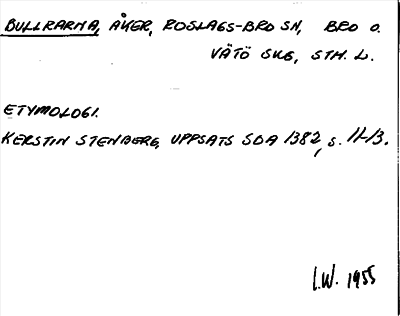 BULLRARNA, ÅKER, ROSLAGS-BRO SN, BRO O.
VÄTÖ SKG, STH. L.
ETYMOLOGI.
KERSTIN STENBERG, UPPSATS SOA 1382, s. 11-13.
I.W. 1955